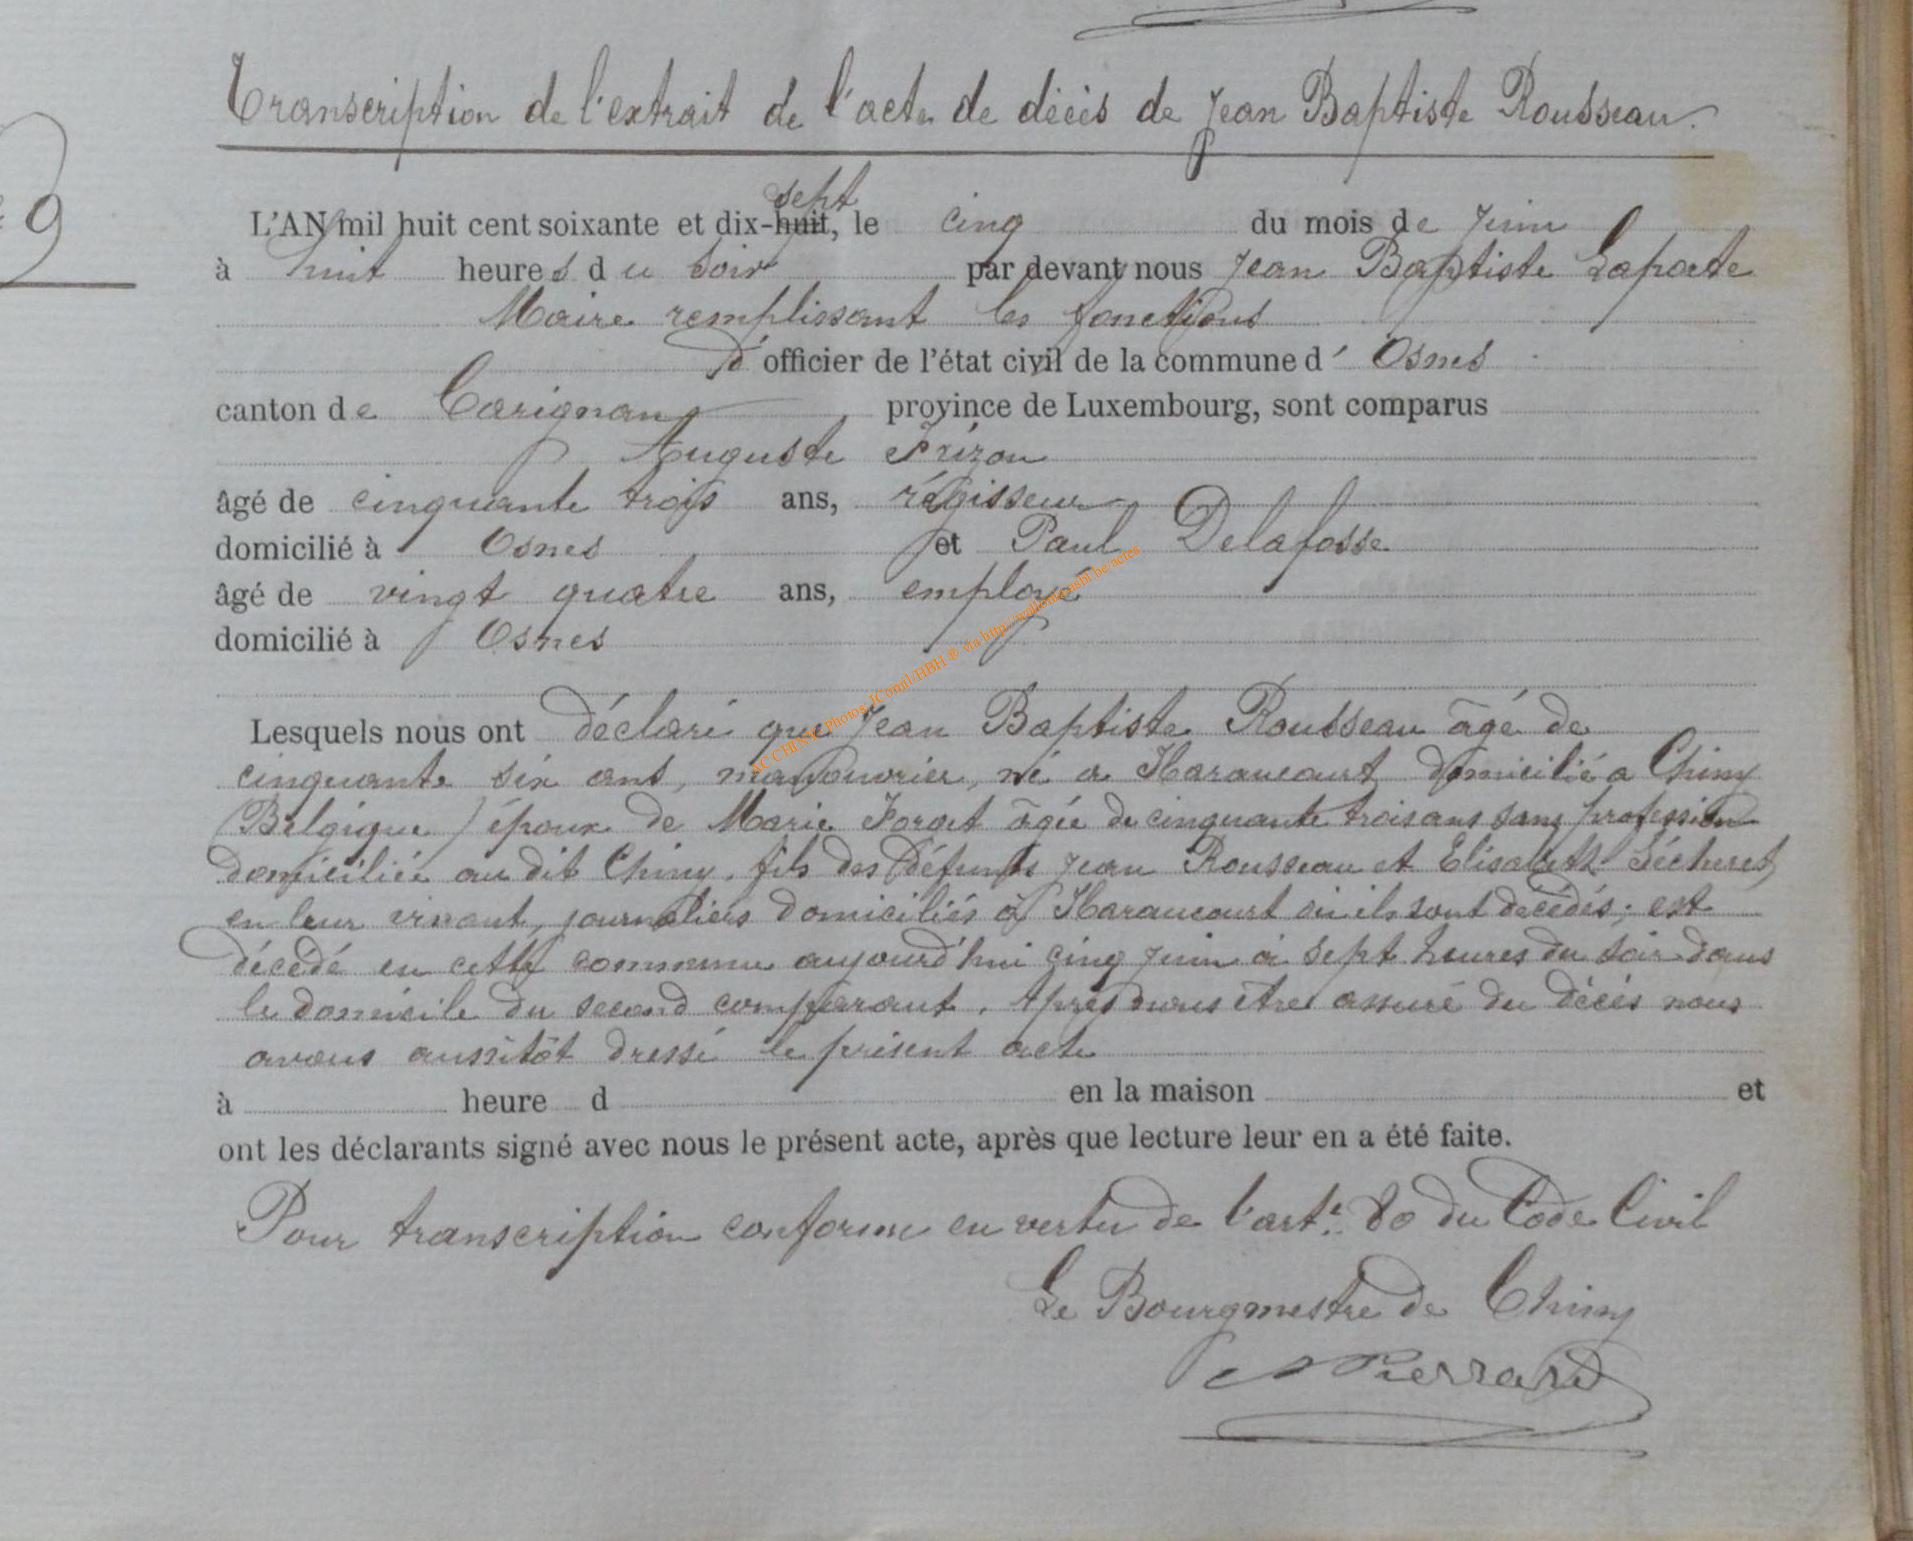 Transcription de l'extrait de l'acte de décès de Jean Baptiste Rousseau.
9
sept
L'AN mil huit cent soixante et dix-huit, le cinq du mois de Juin
à huit heures du soir par devant nous Jean Baptiste Laporte
Maire remplissant les fonctions
d'officier de l'état civil de la commune d' Osnes
canton de Carignan province de Luxembourg, sont comparus
Auguste Frizon
âgé de cinquante trois ans, régisseur
domicilié à Osnes et Paul Delafosse
âgé de vingt quatre ans, employé
domicilié à Osnes
AC CHINY Photos JComil/HBH ® via http://www.bibl.be/actes
Lesquels nous ont déclaré que Jean Baptiste Rousseau âgé de
cinquante six ans, manouvrier, né a Haraucourt domicilié a Chiny
(Belgique) époux de Marie Forget âgée de cinquante trois ans sans profession
domiciliée au dit Chiny, fils des défunts Jean Rousseau et Elisabeth Sécheret,
en leur vivant, journaliers domiciliés à Haraucourt où ils sont décédés; est
décédé en cette commune aujourd'hui cinq Juin à sept heures du soir dans
le domicile du second comparant. Après nous être assuré du décès nous
avons aussitôt dressé le présent acte
à heure d en la maison et
ont les déclarants signé avec nous le présent acte, après que lecture leur en a été faite.
Pour transcription conforme en vertu de l'art. 80 du Code Civil
Le Bourgmestre de Chiny
Pierrard